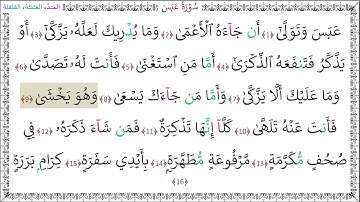 سُوْرَةُ عَبَسَ
المد، الغنة، القلقلة
عَبَسَ وَتَوَلَّىٰٓ ﴿1﴾ أَن جَآءَهُ ٱلْأَعْمَىٰ ﴿2﴾ وَمَا يُدْرِيكَ لَعَلَّهُۥ يَزَّكَّىٰٓ ﴿3﴾ أَوْ
يَذَّكَّرُ فَتَنفَعَهُ ٱلذِّكْرَىٰٓ ﴿4﴾ أَمَّا مَنِ ٱسْتَغْنَىٰ ﴿5﴾ فَأَنتَ لَهُۥ تَصَدَّىٰ ﴿6﴾
وَمَا عَلَيْكَ أَلَّا يَزَّكَّىٰ ﴿7﴾ وَأَمَّا مَن جَآءَكَ يَسْعَىٰ ﴿8﴾ وَهُوَ يَخْشَىٰ ﴿9﴾
فَأَنتَ عَنْهُ تَلَهَّىٰ ﴿10﴾ كَلَّآ إِنَّهَا تَذْكِرَةٌ ﴿11﴾ فَمَن شَآءَ ذَكَرَهُۥ ﴿12﴾ فِي
صُحُفٍ مُّكَرَّمَةٍ ﴿13﴾ مَّرْفُوعَةٍ مُّطَهَّرَةٍۭ ﴿14﴾ بِأَيْدِي سَفَرَةٍ ﴿15﴾ كِرَامٍۭ بَرَرَةٍ
﴿16﴾